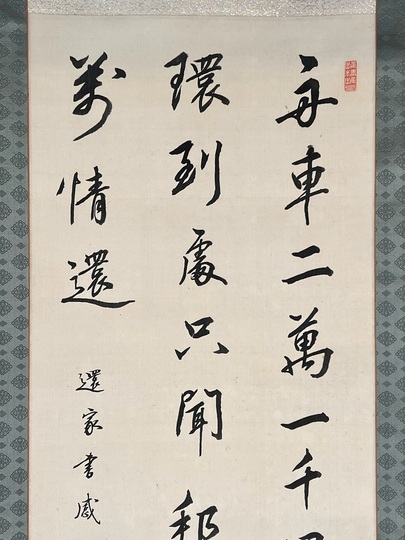 舟車二萬一千
環到處只聞
情還
還家書感